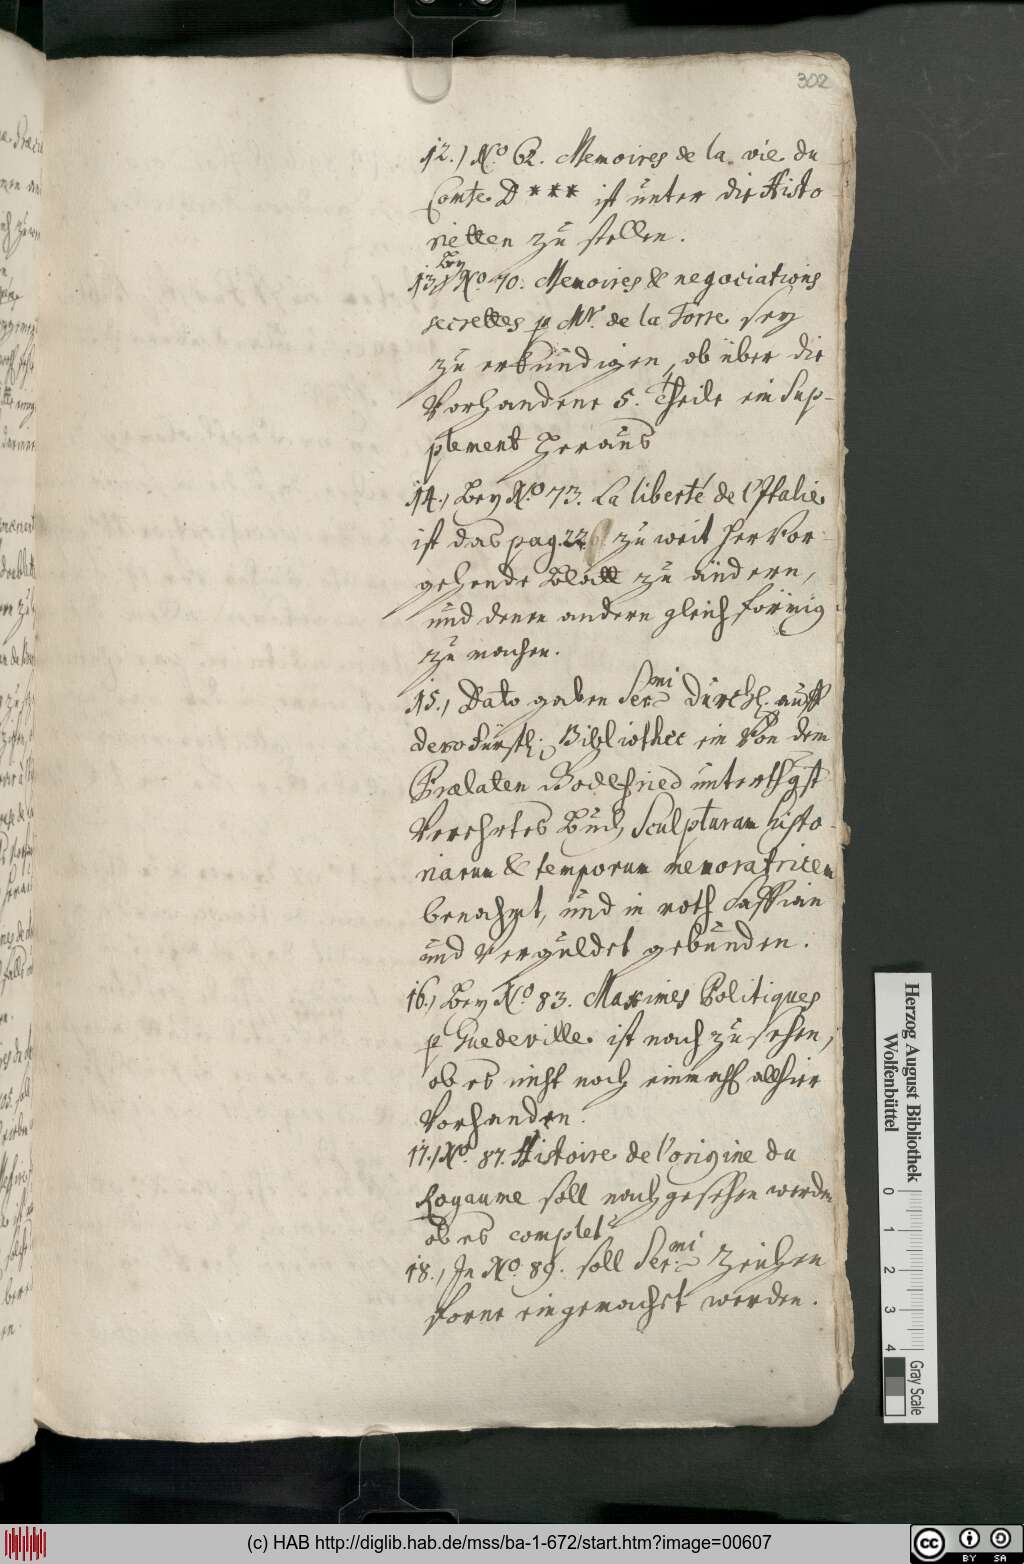 302
12.) No. 62. Memoires de la vie du
Comte D *** ist unter die Histo
rietten zu stellen.
13.) Bey No. 70. Memoires & negociations
secrettes p Mr. de la Torre sey
zu erkündigen, ob über die
Vorhandene 5. Theile ein Sup-
plement heraus
14.) Bey No. 73. La liberté de l'Italie
ist das pag. 226 zu weit hervor
gehende Blatt zu ändern,
und denen andern gleich förmig
zu machen.
15.) Dato gaben Sermi Durchl. auff
dero fürstl. Bibliothec ein Von dem
Prælaten Godefried unterthgst
Verehrtes Buch, Sculpturam histo-
riarum & temporum memoratricem
benahmt, und in roth Saffian
und Verguldet gebunden.
16.) Bey No. 83. Maximes Politiques
p Guedeville ist nach zu sehen,
ob es nicht noch einmahl allhier
Vorhanden.
17.) No. 87. Histoire de l'origine du
Royaume soll nachgesehen werden
ob es complet
18.) In No. 89. soll Sermi Zeichen
forne eingemacht werden.
Herzog August Bibliothek
Wolfenbüttel
0 1 2 3 4
Gray Scale
(c) HAB http://diglib.hab.de/mss/ba-1-672/start.htm?image=00607
CC BY SA